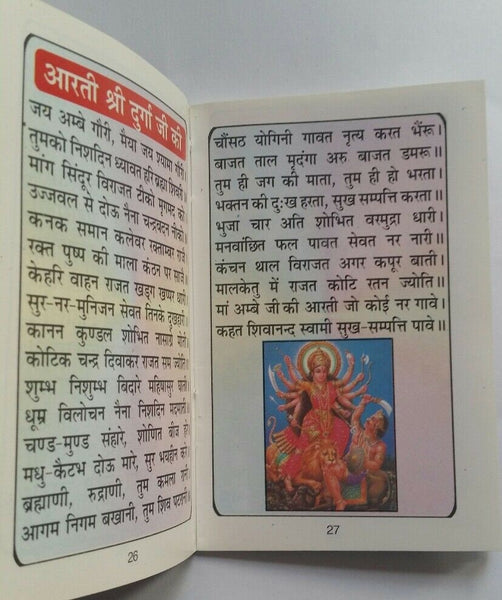 आरती श्री दुर्गा जी की
जय अम्बे गौरी, मैया जय श्यामा गौरी।
तुमको निशदिन ध्यावत हरि ब्रह्मा शिवरी॥
मांग सिंदूर विराजत टीको मृगमद को
उज्जवल से दोऊ नैना चन्द्रवदन नीको।
कनक समान कलेवर रक्ताम्बर राजै
रक्त पुष्प की माला कंठन पर साजै।
केहरि वाहन राजत खड्ग खप्पर धारी
सुर-नर-मुनिजन सेवत तिनके दुखहारी
कानन कुण्डल शोभित नासाग्रे मोती
कोटिक चन्द्र दिवाकर राजत सम ज्योति
शुम्भ निशुम्भ बिदारे महिषासुर घाती
धूम्र विलोचन नैना निशदिन मदमाती
चण्ड-मुण्ड संहारे, शोणित बीज हरे
मधु-कैटभ दोऊ मारे, सुर भयहीन करे
ब्रह्माणी, रुद्राणी, तुम कमला रानी
आगम निगम बखानी, तुम शिव पटरानी
26
चौंसठ योगिनी गावत नृत्य करत भैंरू।
बाजत ताल मृदंगा अरु बाजत डमरू॥
तुम ही जग की माता, तुम ही हो भरता।
भक्तन की दुःख हरता, सुख सम्पत्ति करता॥
भुजां चार अति शोभित वरमुद्रा धारी।
मनवांछित फल पावत सेवत नर नारी॥
कंचन थाल विराजत अगर कपूर बाती।
मालकेतु में राजत कोटि रतन ज्योति॥
मां अम्बे जी की आरती जो कोई नर गावे।
कहत शिवानन्द स्वामी सुख-सम्पत्ति पावे॥
27